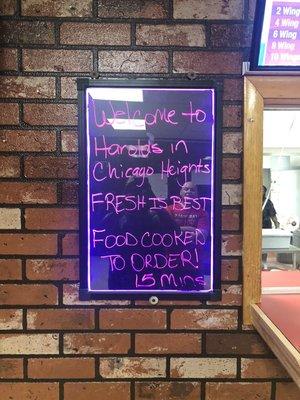 Welcome to
Harolds in
Chicago Heights
FRESH IS BEST
FOOD COOKED
TO ORDER!
15 Mins
2 Wing
4 Wing
6 Wing
8 Wing
10 Wing